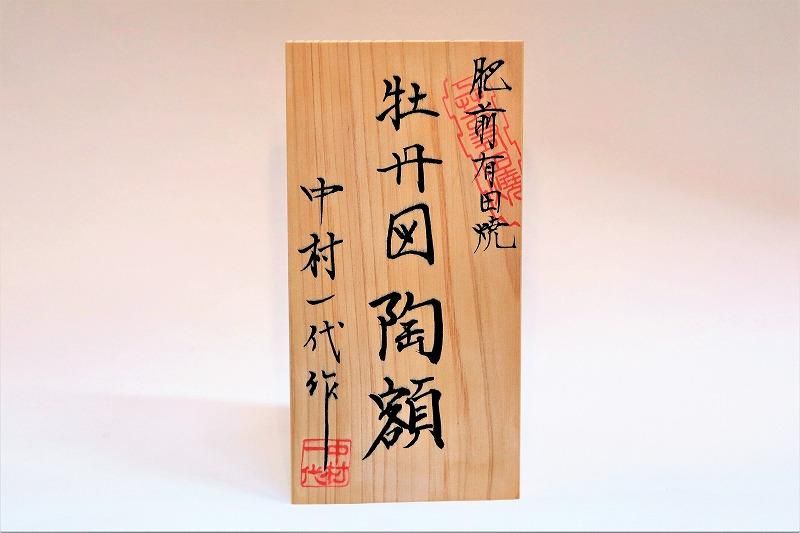 肥前有田焼
牡丹図陶額
中村一代作
中村
一代